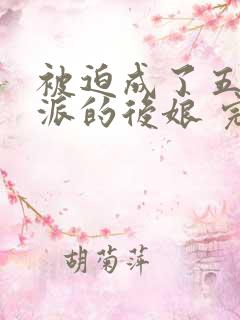 被迫成了五
派的後娘 完
胡菊萍